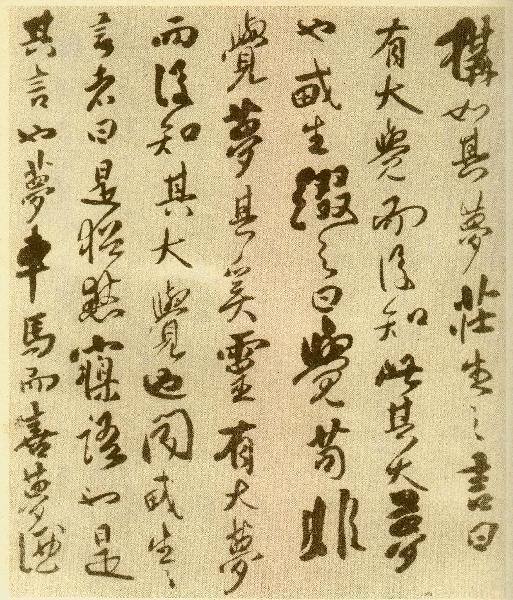 構如其夢莊生之書曰
有大覺而後知此其大夢
也生綴之曰覺苟非
覺夢其奚靈有大夢
而後知其大覺也聞生之
言者曰是猶語也是
其言也夢車馬而喜夢酒